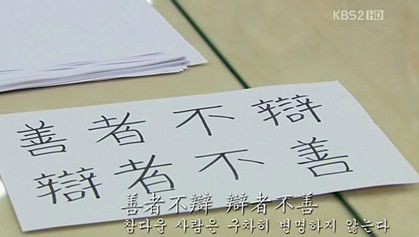 KBS2 HD
善者不辯
辯者不善
善者不辯 辯者不善
참다운 사람은 구차히 변명하지 않는다